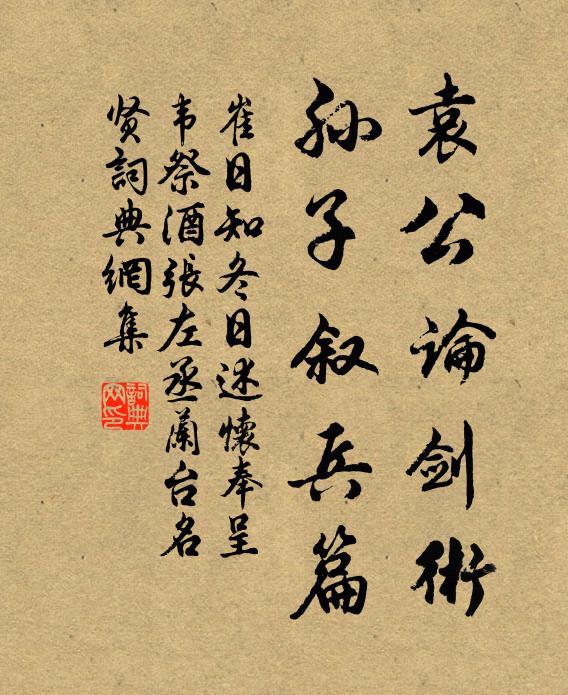 袁公論剑術
孙子叙兵篇
崔日知冬日述懷奉呈
韦祭酒張左丞蘭台名
贤詞典網集
詞典
网印